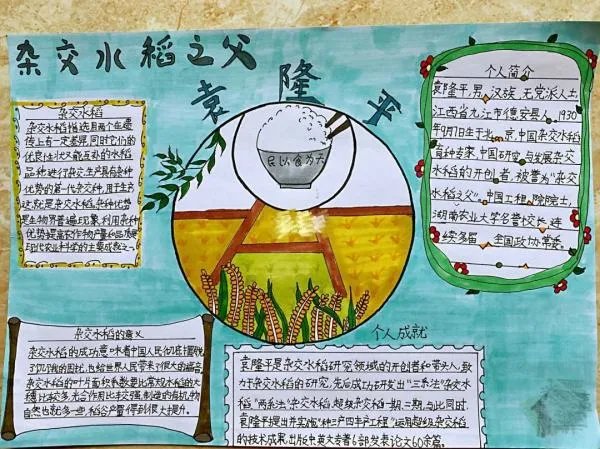 杂交水稻之父
袁隆平
杂交水稻
杂交水稻指选用两个在遗
传上有一定差异,同时它们的
优良性状又能互补的水稻
品种进行杂交,生产具有杂种
优势的第一代杂交种,用于生
产,这就是杂交水稻。杂种优势
是生物界普遍现象,利用杂种
优势提高农作物产量和品质是
现代农业科学的主要成就之一
民以食为天
个人简介
袁隆平,男,汉族,无党派人士
江西省九江市德安县人,1930
年9月7日生于北京,中国杂交水稻
育种专家,中国研究与发展杂交
水稻的开创者,被誉为“杂交
水稻之父”。中国工程院院士,
湖南农业大学名誉校长,连
续多届 全国政协常委。
杂交水稻的意义
杂交水稻的成功意味着中国人民彻底摆脱
了饥饿的困扰,也给世界人民带来了很大的福音。
杂交水稻的叶片面积系数要比常规水稻的大
穗比较多,光合作用比较强,制造的有机物
自然也就多一些,稻谷产量得到很大提升。
个人成就
袁隆平是杂交水稻研究领域的开创者和带头人,致
力于杂交水稻的研究,先后成功研发出“三系法”杂交水
稻“两系法”杂交水稻,超级杂交稻一期、三期,与此同时,
袁隆平提出并实施“种三产四丰产工程”运用超级杂交稻
的技术成果,出版中英文专著6部发表论文60余篇。